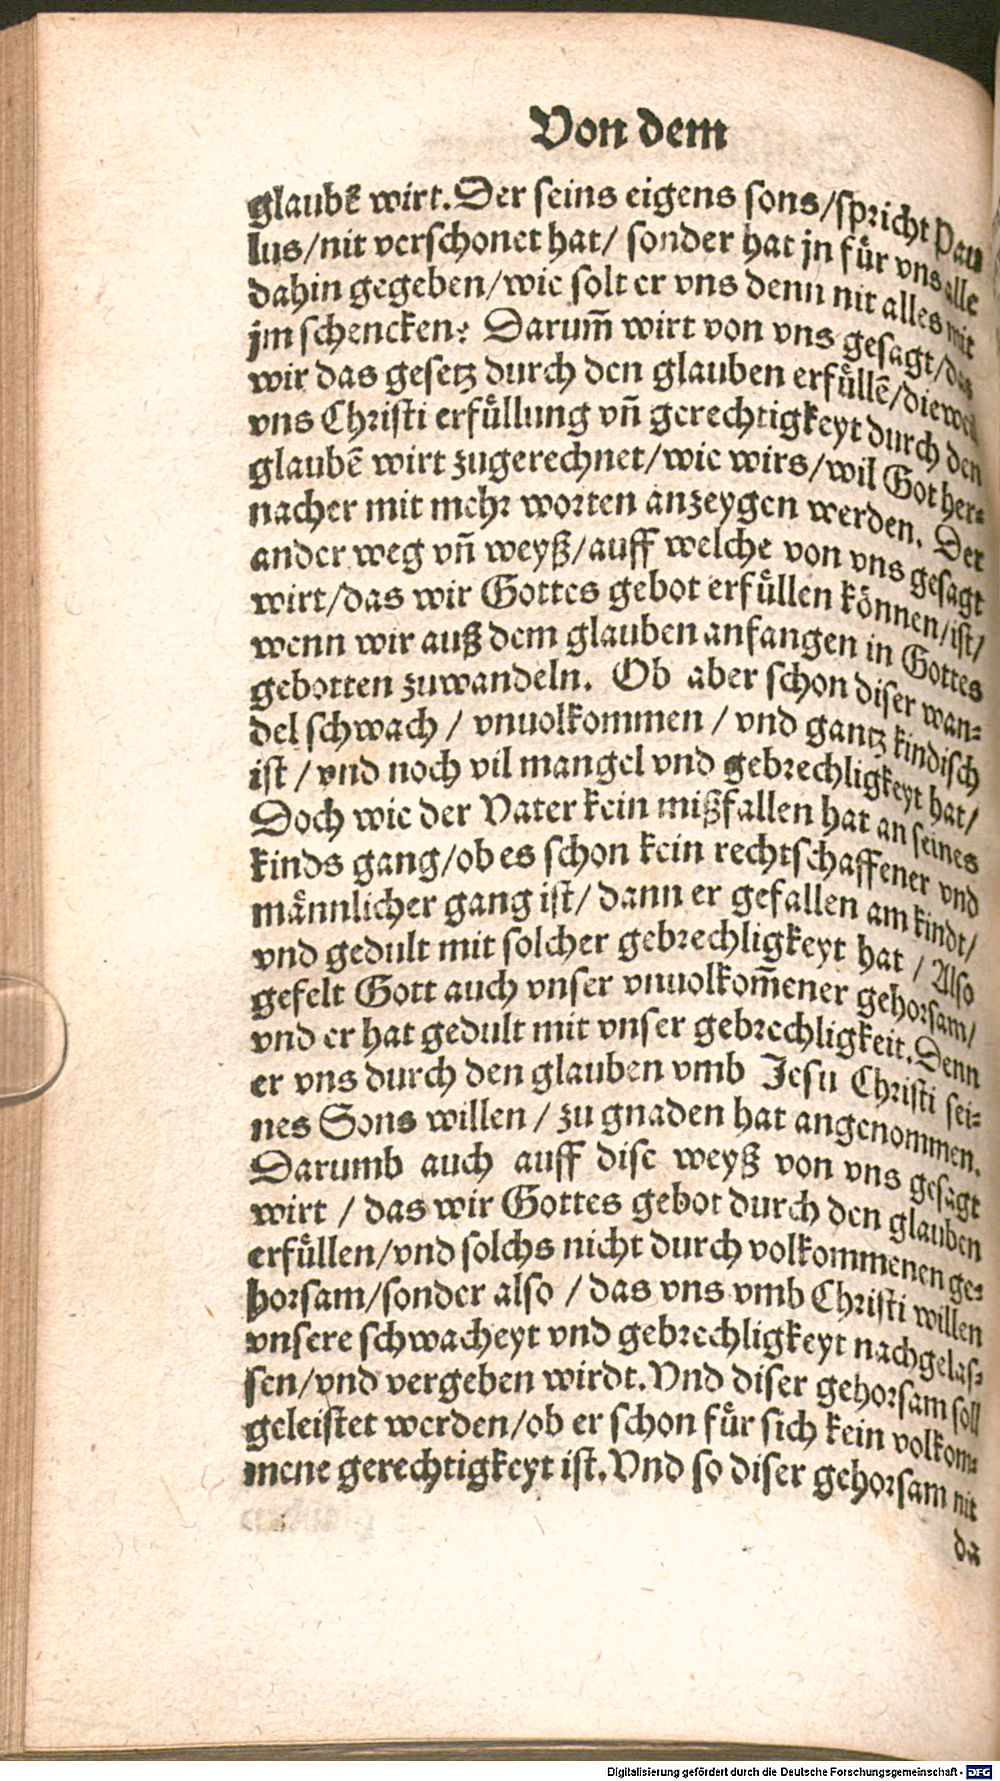 Von dem
glaubẽ wirt. Der seins eigens sons/spricht Pau
lus/nit verschonet hat/ sonder hat jn fuͤr vns alle
dahin gegeben/wie solt er vns denn nit alles mit
jm schencken? Darum̃ wirt von vns gesagt/das
wir das gesetz durch den glauben erfuͤllẽ/dieweil
vns Christi erfuͤllung vñ gerechtigkeyt durch den
glaubẽ wirt zugerechnet/wie wirs/wil Got her-
nacher mit mehr worten anzeygen werden. Der
ander weg vñ weyß/auff welche von vns gesagt
wirt/das wir Gottes gebot erfuͤllen koͤnnen/ist/
wenn wir auß dem glauben anfangen in Gottes
gebotten zuwandeln. Ob aber schon diser wan-
del schwach / vnuolkommen / vnd gantz kindisch
ist / vnd noch vil mangel vnd gebrechligkeyt hat/
Doch wie der Vater kein mißfallen hat an seines
kinds gang/ob es schon kein rechtschaffener vnd
maͤnnlicher gang ist/ dann er gefallen am kindt/
vnd gedult mit solcher gebrechligkeyt hat / Also
gefelt Gott auch vnser vnuolkom̃ener gehorsam/
vnd er hat gedult mit vnser gebrechligkeit. Denn
er vns durch den glauben vmb Jesu Christi sei-
nes Sons willen / zu gnaden hat angenommen.
Darumb auch auff dise weyß von vns gesagt
wirt / das wir Gottes gebot durch den glauben
erfuͤllen/vnd solchs nicht durch volkommenen ge-
horsam/sonder also / das vns vmb Christi willen
vnsere schwacheyt vnd gebrechligkeyt nachgelas-
sen/vnd vergeben wirdt. Vnd diser gehorsam soll
geleistet werden/ob er schon fuͤr sich kein volkom-
mene gerechtigkeyt ist. Vnd so diser gehorsam nit
da
Digitalisierung gefördert durch die Deutsche Forschungsgemeinschaft - DFG